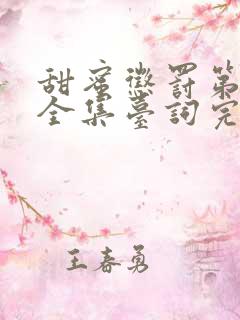 甜蜜懲罰第
全集臺詞完
王春勇